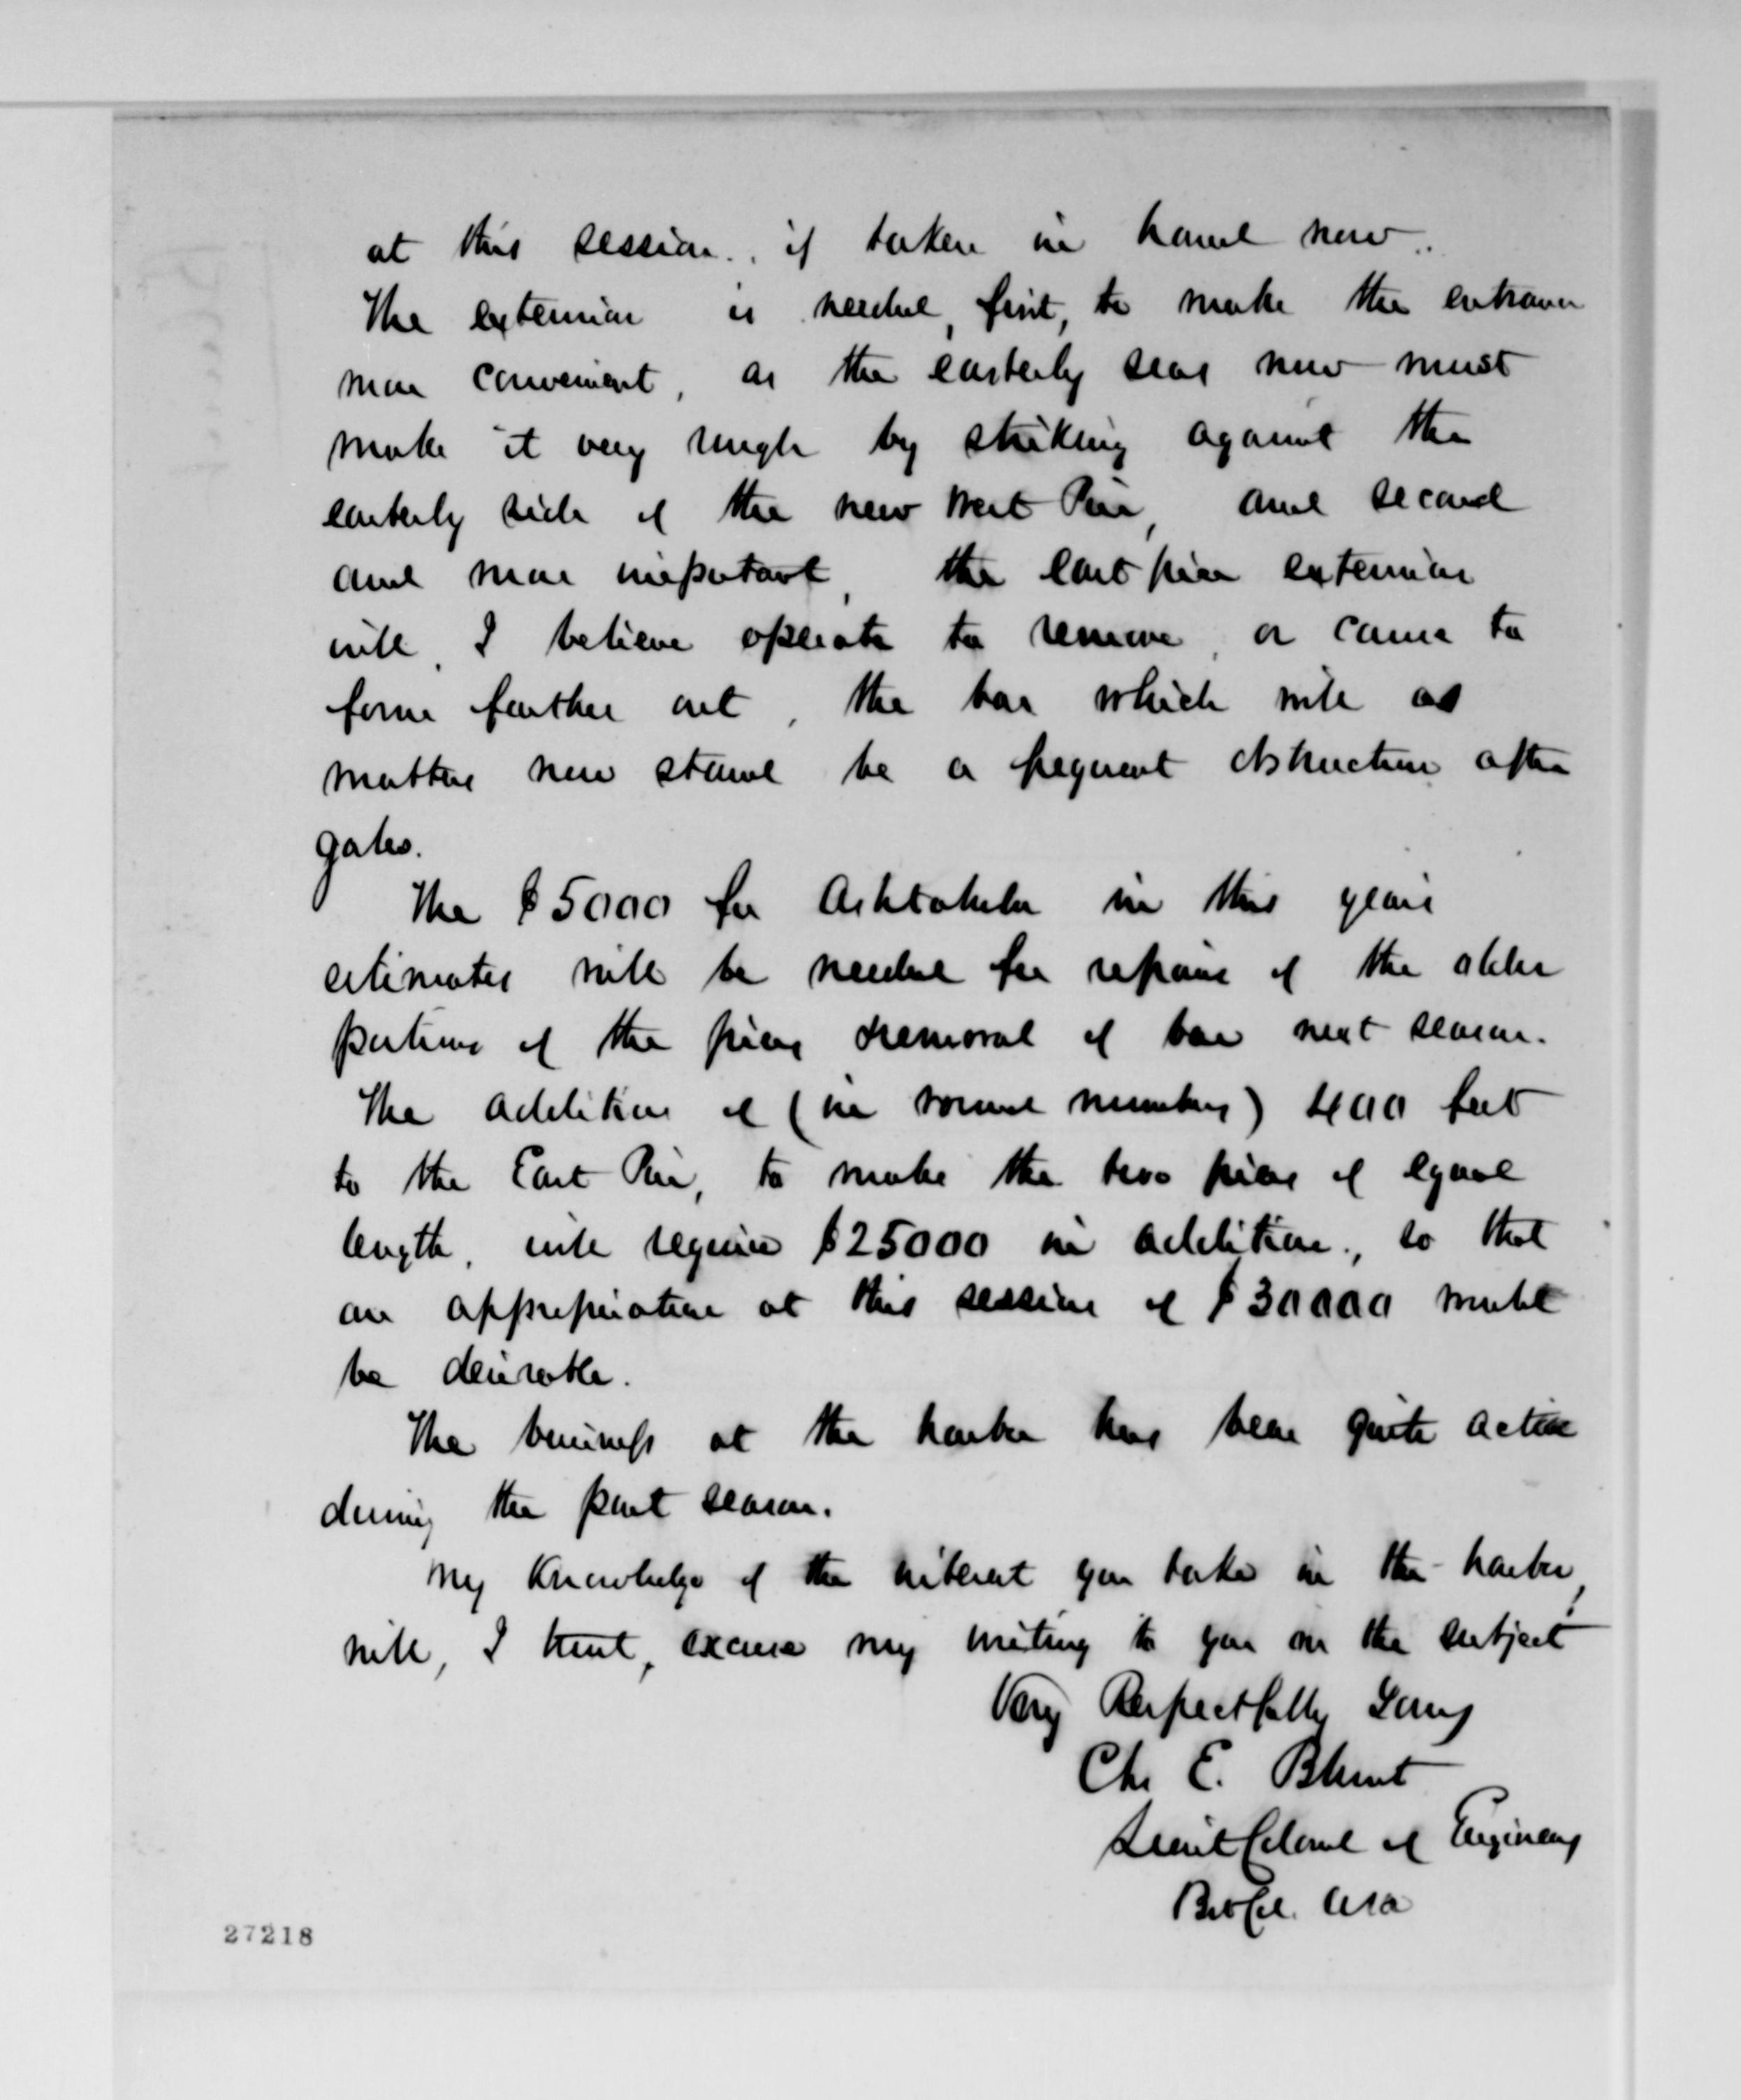 at this session., if taken in hand now.
The extension is needed, first, to make the entrance
more convenient, as the easterly seas now must
make it very rough by striking against the
easterly side of the new West Pier, and second
and more important, the East pier extension
will, I believe operate to remove, or cause to
form farther out, the bar which will as
matters now stand be a frequent obstruction after
gales.
The $5000 for Ashtabula in this years
estimates will be needed for repairs of the older
portions of the piers & removal of bar next season.
The addition of (in round numbers) 400 feet
to the East Pier, to make the two piers of equal
length, will require $25000 in addition., so that
an appropriation at this session of $30000 would
be desirable.
The business at the harbor has been quite active
during the past season.
My knowledge of the interest you take in the harbor,
will, I trust, excuse my writing to you on the subject
Very Respectfully Yours
Chs E. Blunt
Lieut Colonel of Engineers
Bvt Col. USA
27218